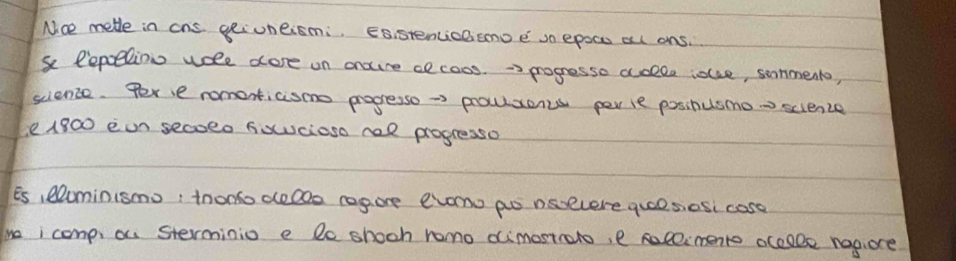 Nce mette in cris gli uneismi. Esistenzialismo è un epoca di ans...
se l'apollineo vuole dare un ordine al caos. → progresso delle idee, sentimento,
scienze. Per il romanticismo progresso → provvidenza per il positivismo → scienze
il 1800 è un secolo fiducioso nel progresso
Es illuminismo: trionfo della ragione l'uomo può risolvere qualsiasi cosa
ma i campi di sterminio e la shoah hanno dimostrato il fallimento della ragione